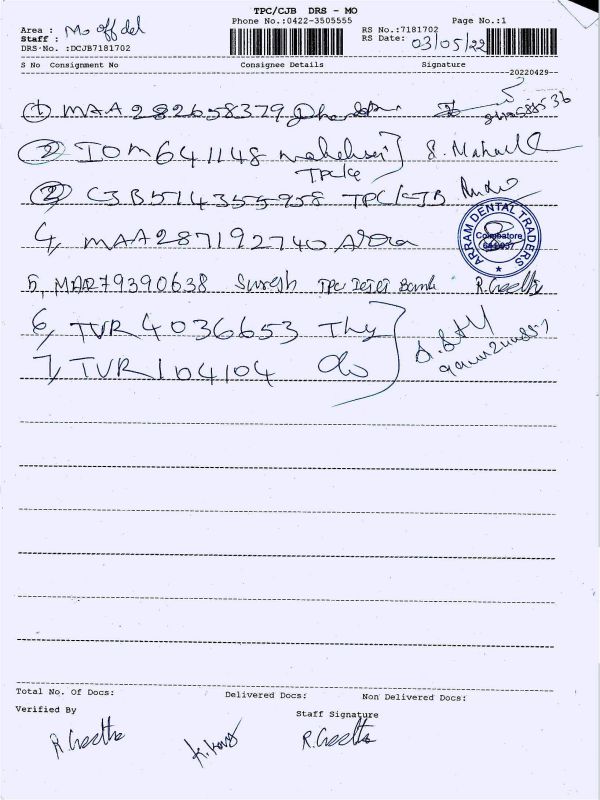 TPC/CJB DRS - MO
Phone No.:0422-3505555
Page No.:1
Area : Mo off del
Staff :
DRS-No. :DCJB7181702
RS No.:7181702
RS Date: 03/05/22
S No Consignment No Consignee Details Signature
20220429
1 MAA282658379
2 IOM641148 S. Mahale
TPC
3 CJB514355958 TPC/CJB
4, MAA287192740 Arora
ARRAM DENTAL TRADERS
Coimbatore
5, MAR79390638 Suresh TPC Bank R. Geetha
6, TVR4036653 Thy
7, TVR104104 do
Total No. Of Docs: Delivered Docs: Non Delivered Docs:
Verified By Staff Signature
R. Geetha R. Geetha